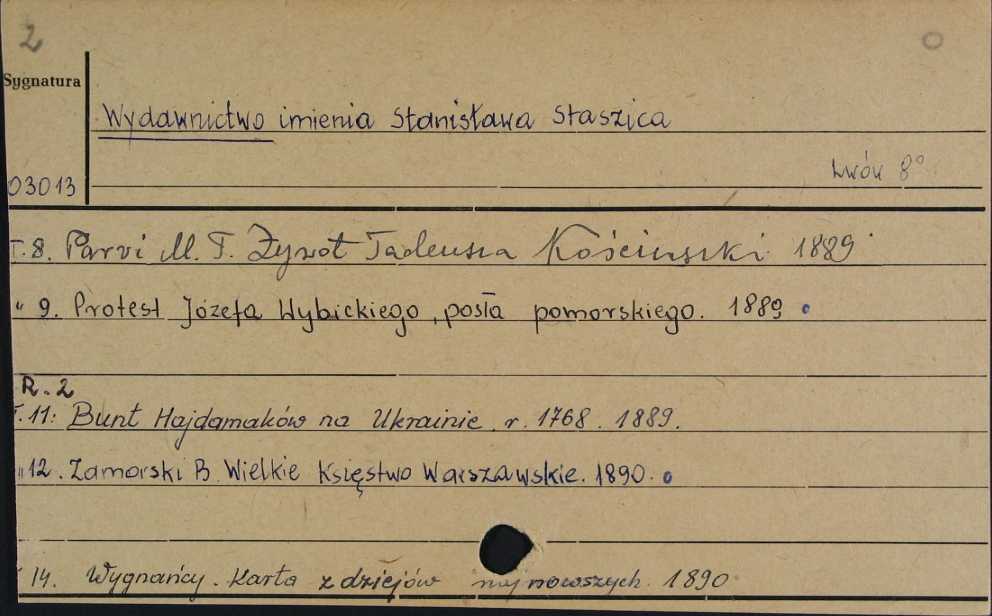 2
Sygnatura
Wydawnictwo imienia Stanisława Staszica
Lwów 8°
03013
T.8. Parvi M. T. Żywot Tadeusza Kościuszki 1889
" 9. Protest Józefa Wybickiego, posła pomorskiego. 1889
R. 2
T. 11: Bunt Hajdamaków na Ukrainie r. 1768. 1889.
" 12. Zamorski B. Wielkie Księstwo Warszawskie. 1890.
" 14. Wygnańcy. Karta z dziejów najnowszych 1890